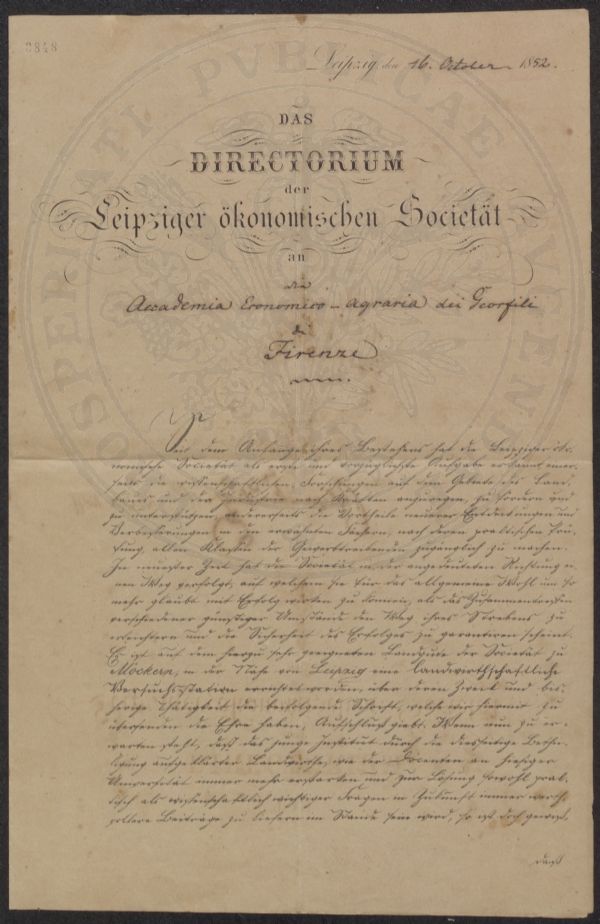 3848
Leipzig, den 16. October 1852.
DAS
DIRECTORIUM
der
Leipziger ökonomischen Societät
an
die
Accademia Economico-agraria dei Georfili
di
Firenze
Seit dem Anfange ihres Bestehens hat die Leipziger öko-
nomische Societät als erste und vorzüglichste Aufgabe erkannt einer-
seits die wissenschaftlichen Forschungen auf dem Gebiete des Land-
baues und der Industrie nach Kräften anzuregen, zu fördern und
zu unterstützen, andererseits die Vortheile neuerer Entdeckungen und
Verbesserungen in den erwähnten Fächern, nach deren praktischen Prü-
fung, allen Klassen der Gewerbtreibenden zugänglich zu machen.
In neuester Zeit hat die Societät in der angedeuteten Richtung ei-
nen Weg verfolgt, auf welchem sie für das allgemeine Wohl um so
mehr glaubt mit Erfolg wirken zu können, als das Zusammentreffen
verschiedener günstiger Umstände den Weg ihres Strebens zu
erleichtern und die Sicherheit des Erfolges zu garantiren scheint.
Es ist auf dem hierzu sehr geeigneten Landgute der Societät zu
Möckern, in der Nähe von Leipzig eine landwirthschaftliche
Versuchsstation errichtet worden, über deren Zweck und bis-
herige Thätigkeit die beifolgende Schrift, welche wir hiermit zu
übersenden die Ehre haben, Aufschluß giebt. Wenn nun zu er-
warten steht, daß das junge Institut durch die
aufgeklärter Landwirthe, wie der Docenten an hiesiger
Universität immer mehr erstarken und zur Lösung sowohl prak-
tisch als wissenschaftlich wichtiger Fragen in Zukunft immer werth-
vollere Beiträge zu liefern im Stande sein wird, so ist doch gewiß,
daß